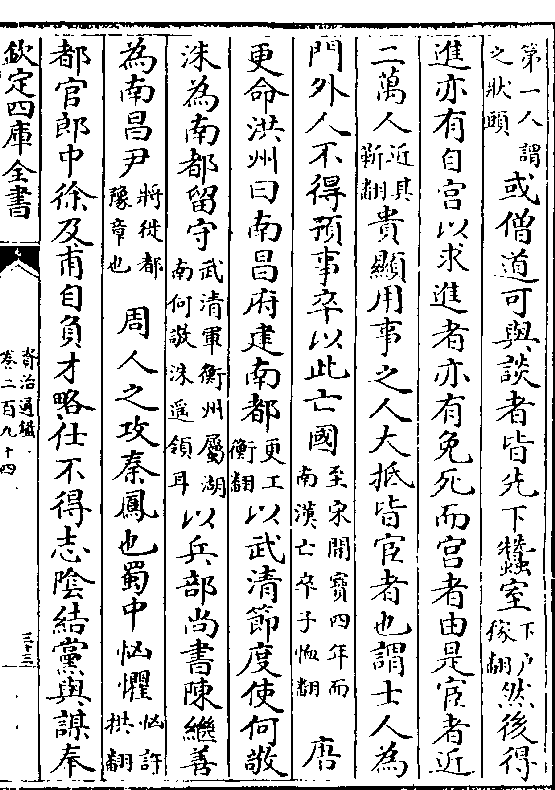 第一人謂之狀頭或僧道可與談者皆先下蠶室下戶稼翻然後得
進亦有自宮以求進者亦有免死而宮者由是宦者近
二萬人近其靳翻貴顯用事之人大抵皆宦者也謂士人為
門外人不得預事卒以此亡國至宋開寶四年而南漢亡卒子恤翻唐
更命洪州曰南昌府建南都更工衡翻以武清節度使何敬
洙為南都留守武清軍衡州屬湖南何敬洙遥領耳以兵部尚書陳繼善
為南昌尹將徙都豫章也周人之攻秦鳳也蜀中忷懼忷許拱翻
都官郎中徐及甫自負才略仕不得志陰結黨與謀奉
欽定四庫全書
資治通鑑
卷二百九十四
三十三